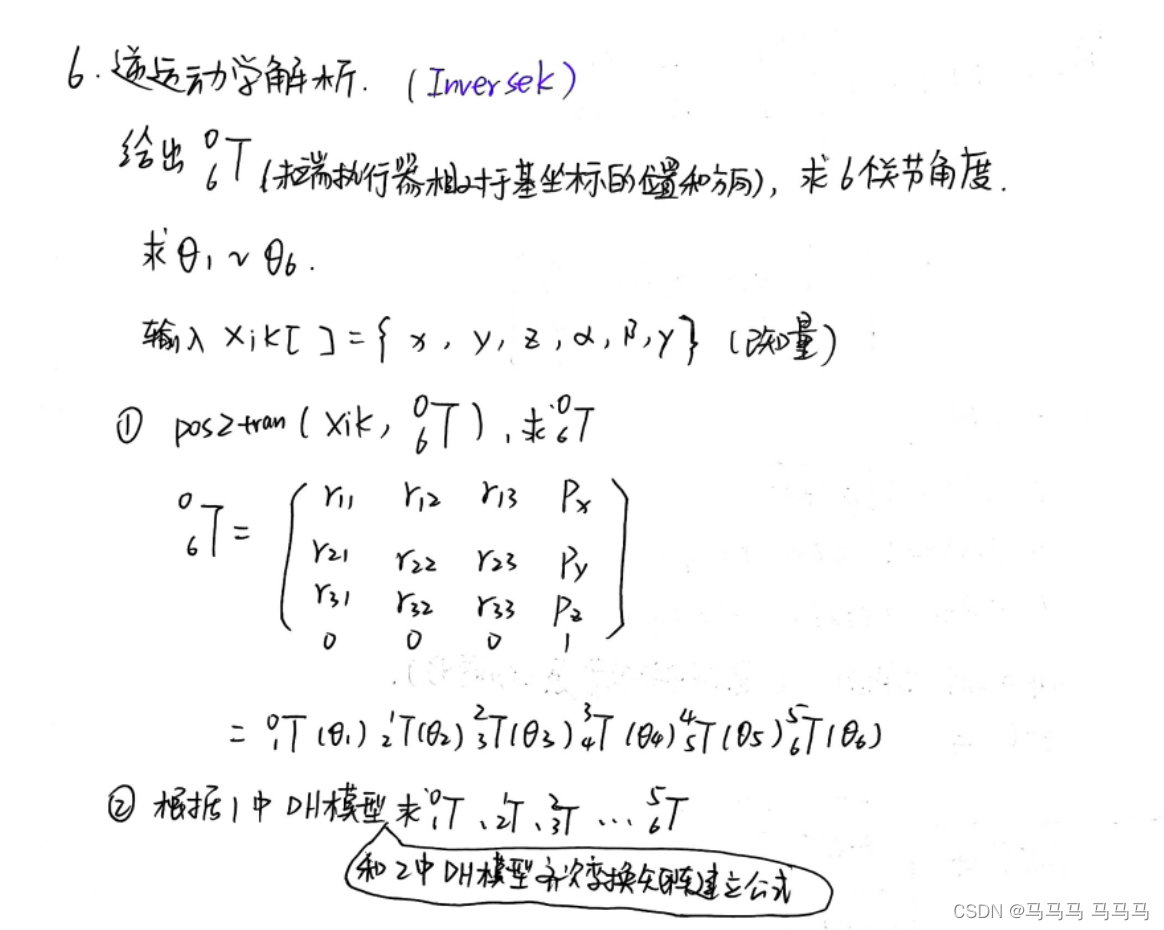 6. 逆运动学解析. (Inversek)
给出 ⁰₆T (末端执行器相对于基坐标的位置和方向), 求6个关节角度.
求 θ₁ ~ θ₆.
输入 Xik[ ] = { x, y, z, α, β, γ } (已知量)
① pos2tran ( Xik, ⁰₆T ), 求 ⁰₆T
r₁₁ r₁₂ r₁₃ Px
⁰₆T =
r₂₁ r₂₂ r₂₃ Py
r₃₁ r₃₂ r₃₃ Pz
0 0 0 1
= ⁰₁T (θ₁) ¹₂T(θ₂) ²₃T(θ₃) ³₄T (θ₄) ⁴₅T(θ₅) ⁵₆T(θ₆)
② 根据1中DH模型求 ⁰₁T、¹₂T、²₃T ... ⁵₆T
和2中DH模型齐次变换矩阵建立公式
CSDN @马马马 马马马